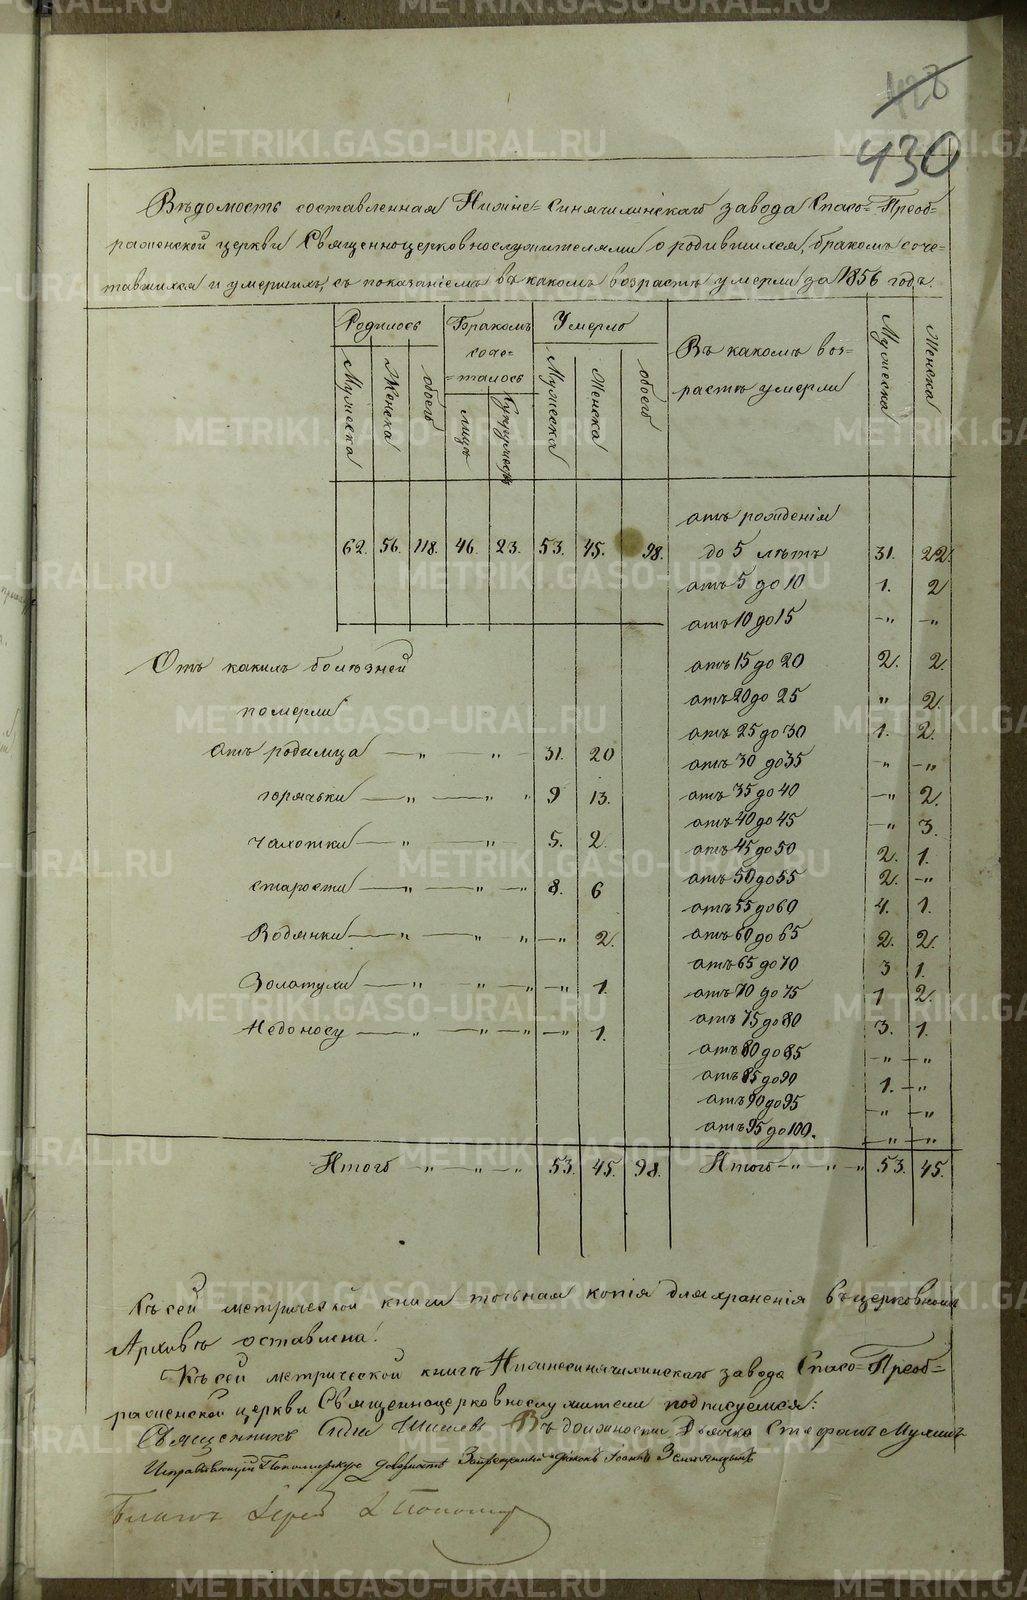 428
430
Вѣдомость составленная Нижне-Синячихинскаго завода Спасо-Преоб-
раженской церкви Священноцерковнослужителями о родившихся, бракомъ соче-
тавшихся и умершихъ, съ показаніемъ въ какомъ возрастѣ умерли за 1856 годъ.
Родилось Бракомъ соче-талось Умерло Въ какомъ воз-растѣ умерли Мужеска Женска
Мужеска Женска обоего лицъ Супружествъ Мужеска Женска обоего
62. 56. 118. 46. 23. 53. 45. 98.
отъ рожденія
до 5 лѣтъ 31. 22.
отъ 5 до 10 1. 2
отъ 10 до 15 -„ -„
отъ 15 до 20 2. 2.
отъ 20 до 25 „ 2.
отъ 25 до 30 1. 2.
отъ 30 до 35 -„ -„
отъ 35 до 40 -„ 2.
отъ 40 до 45 -„ 3.
отъ 45 до 50 2. 1.
отъ 50 до 55 2. -„
отъ 55 до 60 4. 1.
отъ 60 до 65 2. 2.
отъ 65 до 70 3 1.
отъ 70 до 75 1 2.
отъ 75 до 80 3. 1.
отъ 80 до 85 -„ -„
отъ 85 до 90 1. -„
отъ 90 до 95 -„ -„
отъ 95 до 100. -„ -„
Итого -„ -„ -„ 53. 45.
Отъ какихъ болѣзней
померли
Отъ родимца -„ „ - 31. 20
горячьки -„ -„ „ 9 13.
чахотки -„ -„ 5. 2.
старости -„ -„ -„ 8. 6
Водянки -„ -„ „ -„ 2.
Золотухи -„ -„ -„ -„ 1.
Недоносу -„ -„ -„ -„ 1.
Итого -„ -„ -„ 53. 45. 98.
Къ сей метрической книги точьная копія для храненія въ церковномъ
Архивѣ оставлена.
Къ сей метрической книгѣ Нижнесинячихинскаго завода Спасо-Преоб-
раженской церкви Священноцерковнослужители подписуемся:
Священникъ Шишевъ Въ должности Дьячка Стефанъ Мухинъ
Исправляющій Пономарскую должность Запрещенный діаконъ Іоаннъ Земляницынъ
Благоч. Іерей Пономар
METRIKI.GASO-URAL.RU